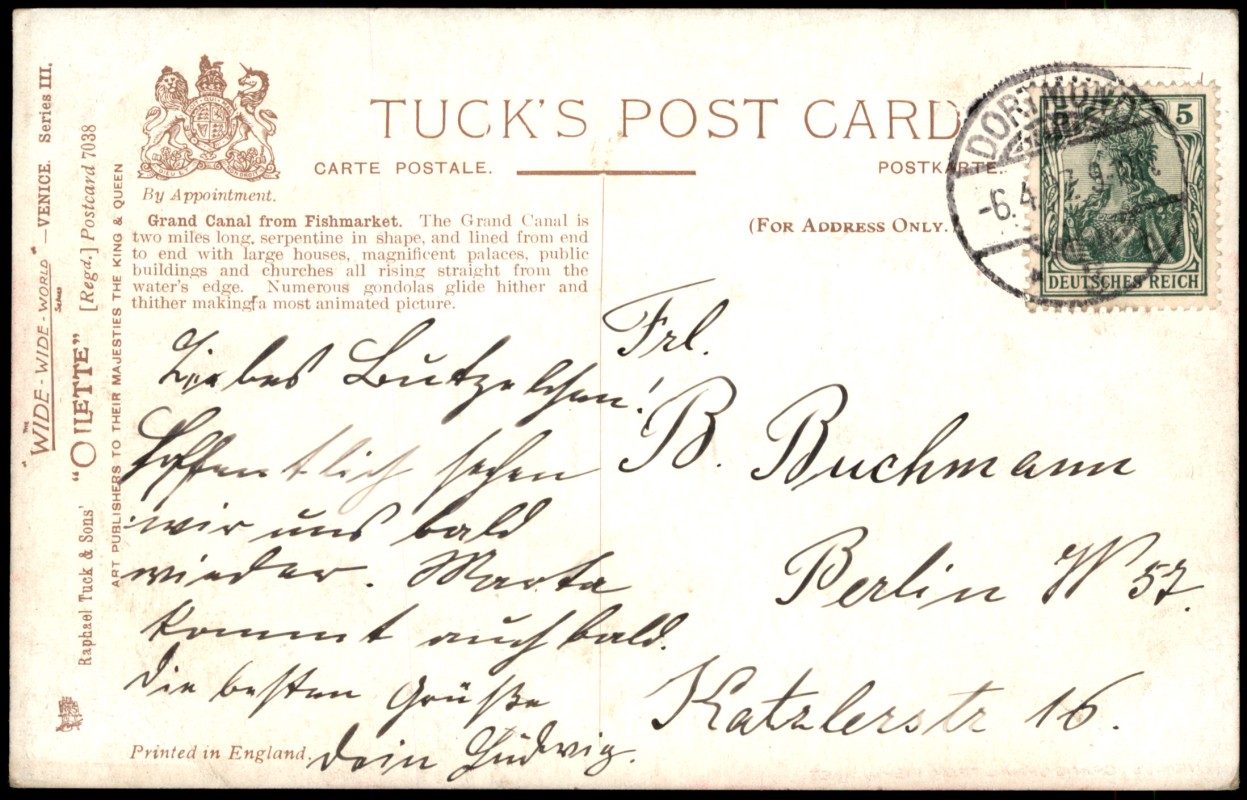 TUCK'S POST CARD
CARTE POSTALE.
POSTKARTE.
By Appointment.
(FOR ADDRESS ONLY.)
Grand Canal from Fishmarket. The Grand Canal is
two miles long, serpentine in shape, and lined from end
to end with large houses, magnificent palaces, public
buildings and churches all rising straight from the
water's edge. Numerous gondolas glide hither and
thither making a most animated picture.
Liebes Butzelchen!
Hoffentlich sehen
wir uns bald
wieder. Marta
kommt auch bald.
Die besten Grüße
Dein Ludwig.
Printed in England.
Frl.
B. Buchmann
Berlin W 57.
Katzlerstr 16.
DORTMUND
-6.4.
5
DEUTSCHES REICH
"THE WIDE-WIDE-WORLD" SERIES —VENICE. Series III.
Raphael Tuck & Sons' "OILETTE" [Regd.] Postcard 7038
ART PUBLISHERS TO THEIR MAJESTIES THE KING & QUEEN